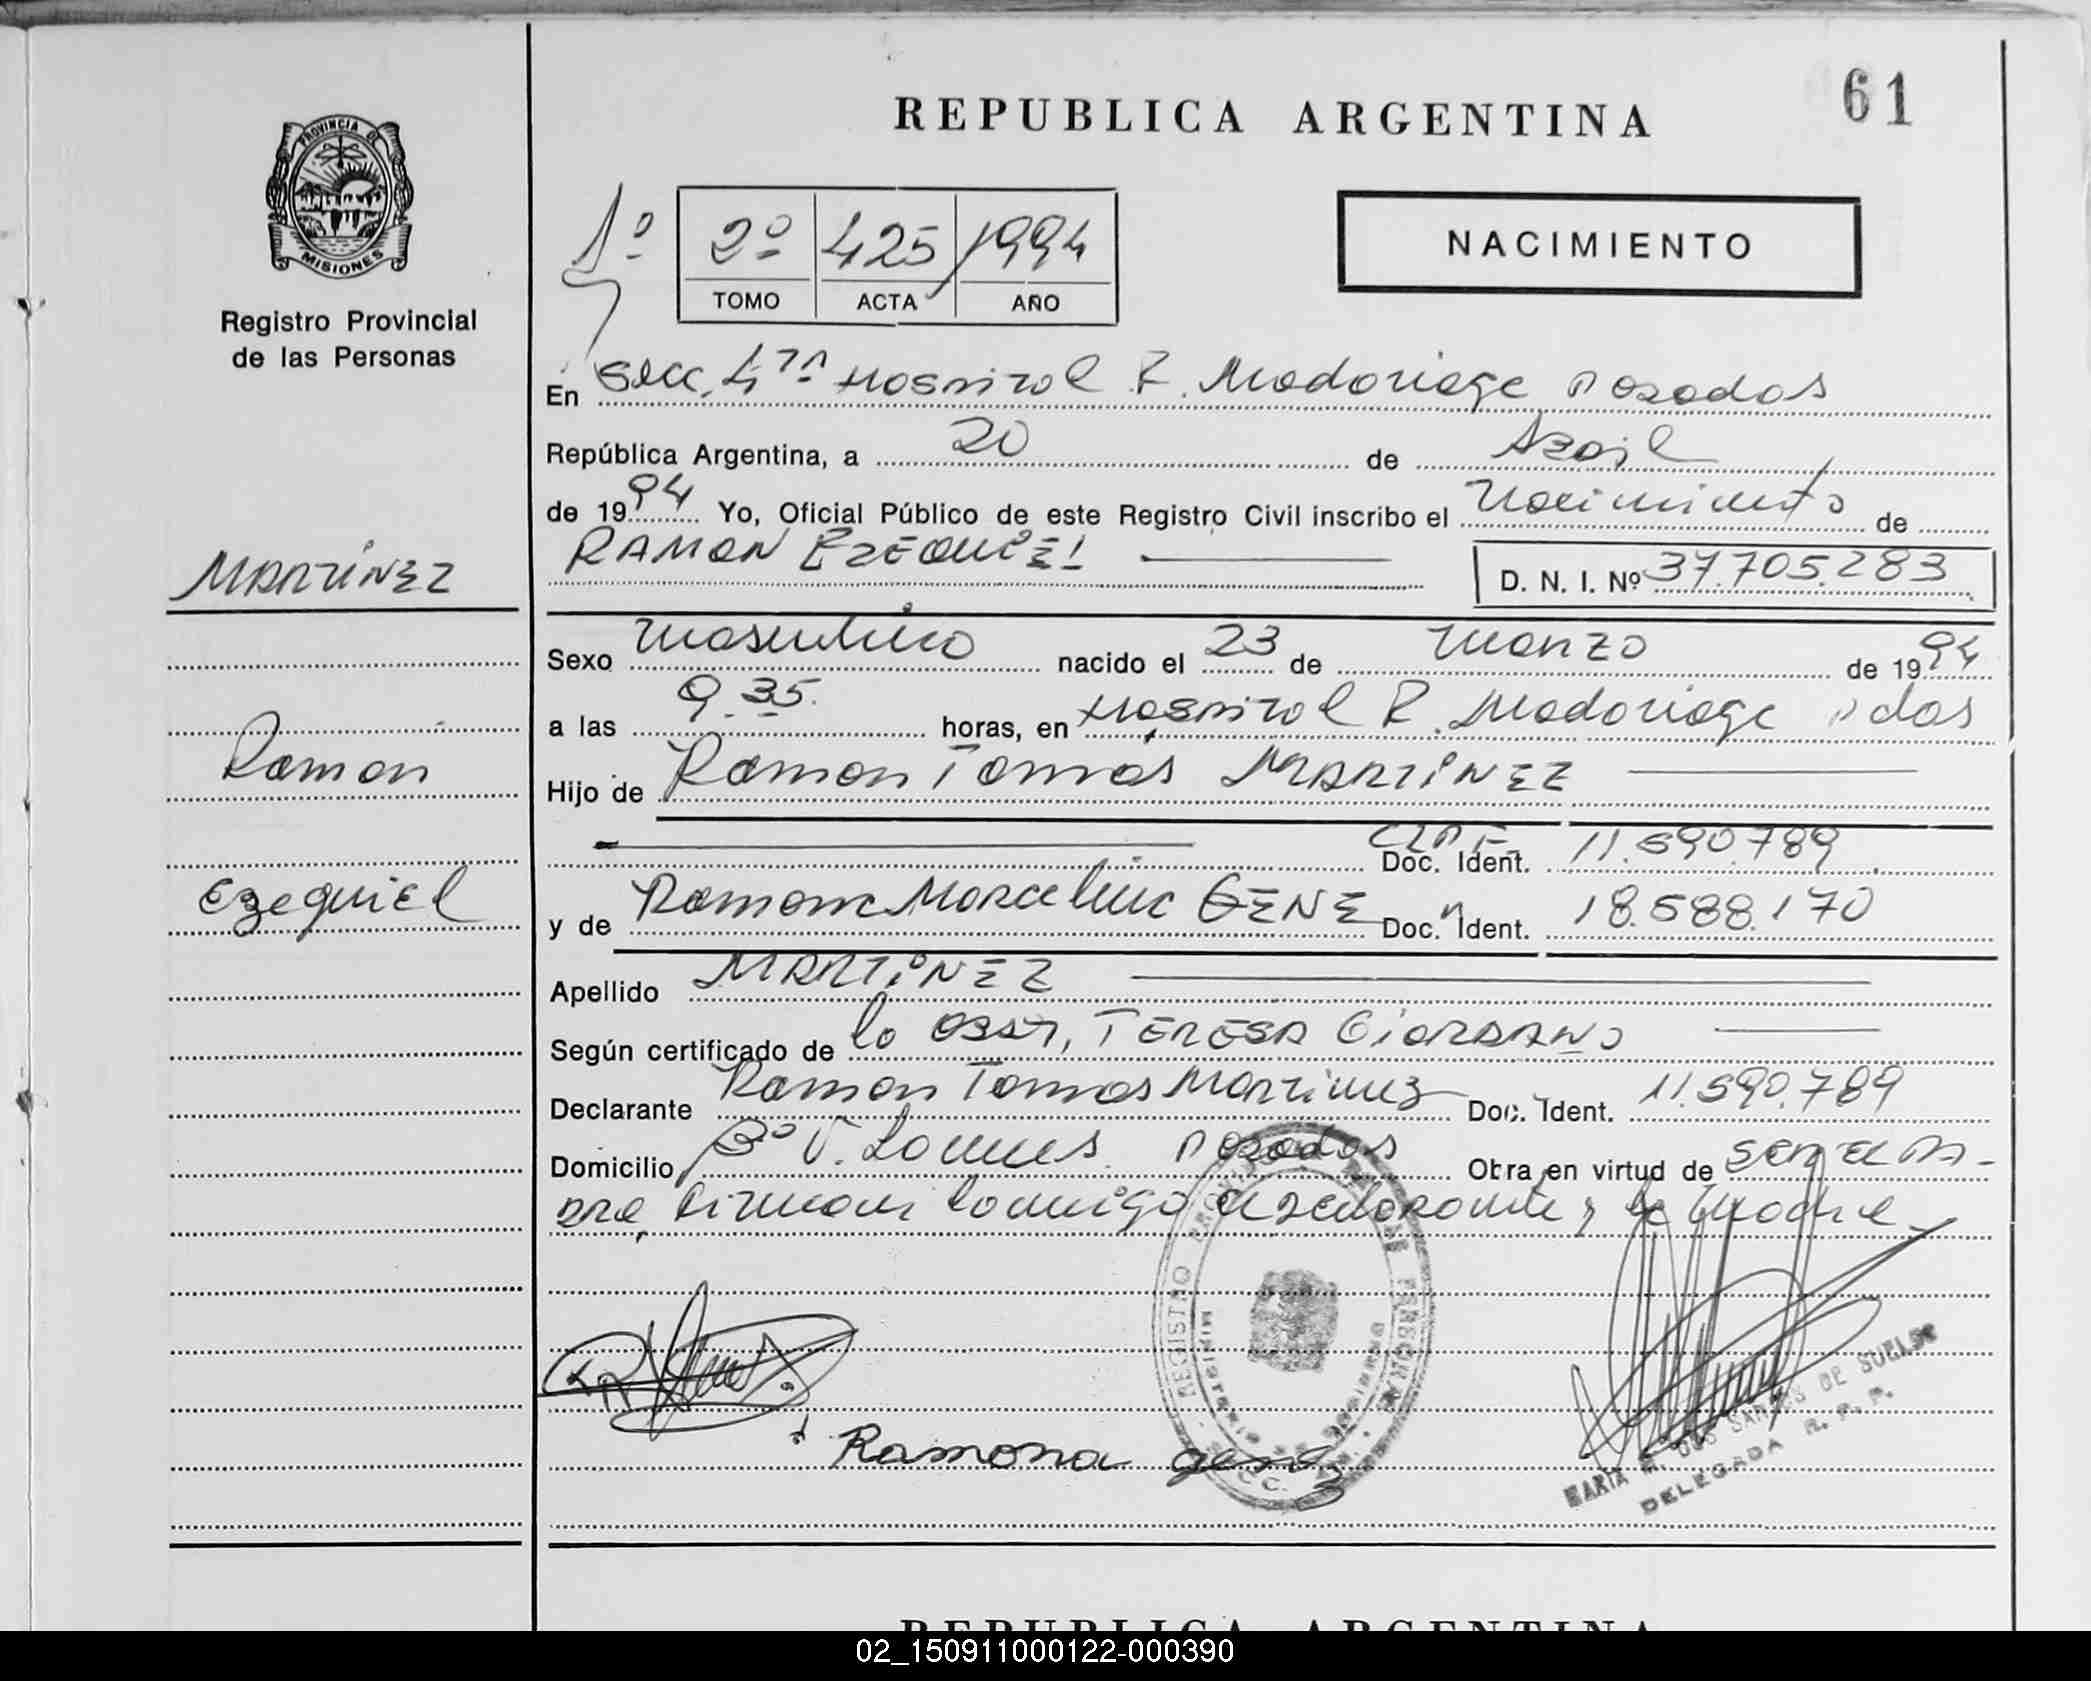 REPUBLICA ARGENTINA
61
PROVINCIA DE
MISIONES
Registro Provincial
de las Personas
1º
2º 425 1994
TOMO ACTA AÑO
NACIMIENTO
En Secc. 4ta Hospital R. Madariaga Posadas
República Argentina, a 20 de Abril
de 1994 Yo, Oficial Público de este Registro Civil inscribo el Nacimiento de
RAMON EZEQUIEL
D. N. I. Nº 37.705.283
MARTINEZ
Ramon
Ezequiel
Sexo Masculino nacido el 23 de Marzo de 1994
a las 9.35. horas, en Hospital R. Madariaga Pdas
Hijo de Ramon Tomás MARTINEZ
Doc. Ident. 11.590.789
y de Ramona Marcelina GENEZ Doc. Ident. 18.588.170
Apellido MARTINEZ
Según certificado de la Obst, TERESA GIORDANO
Declarante Ramon Tomas Martinez Doc. Ident. 11.590.789
Domicilio Bº V. Lanus. Posadas Obra en virtud de ser el pa-
dre, firman conmigo el declarante y la madre
Ramona genez
REGISTRO PROVINCIAL DE LAS PERSONAS
MINISTERIO DE GOBIERNO
MARIA M. DOS SANTOS DE SUELDO
DELEGADA R. P. P.
REPUBLICA ARGENTINA
02_150911000122-000390